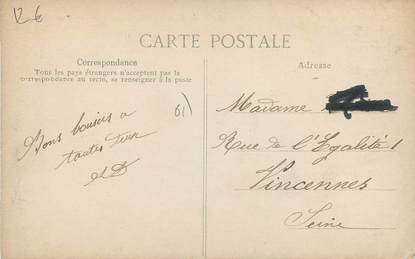 12€
CARTE POSTALE
Correspondance
Tous les pays étrangers n'acceptent pas la
correspondance au recto, se renseigner à la poste
Adresse
61)
Bons baisers a
toutes deux
Madame
Rue de l'Egalité 1
Vincennes
Seine